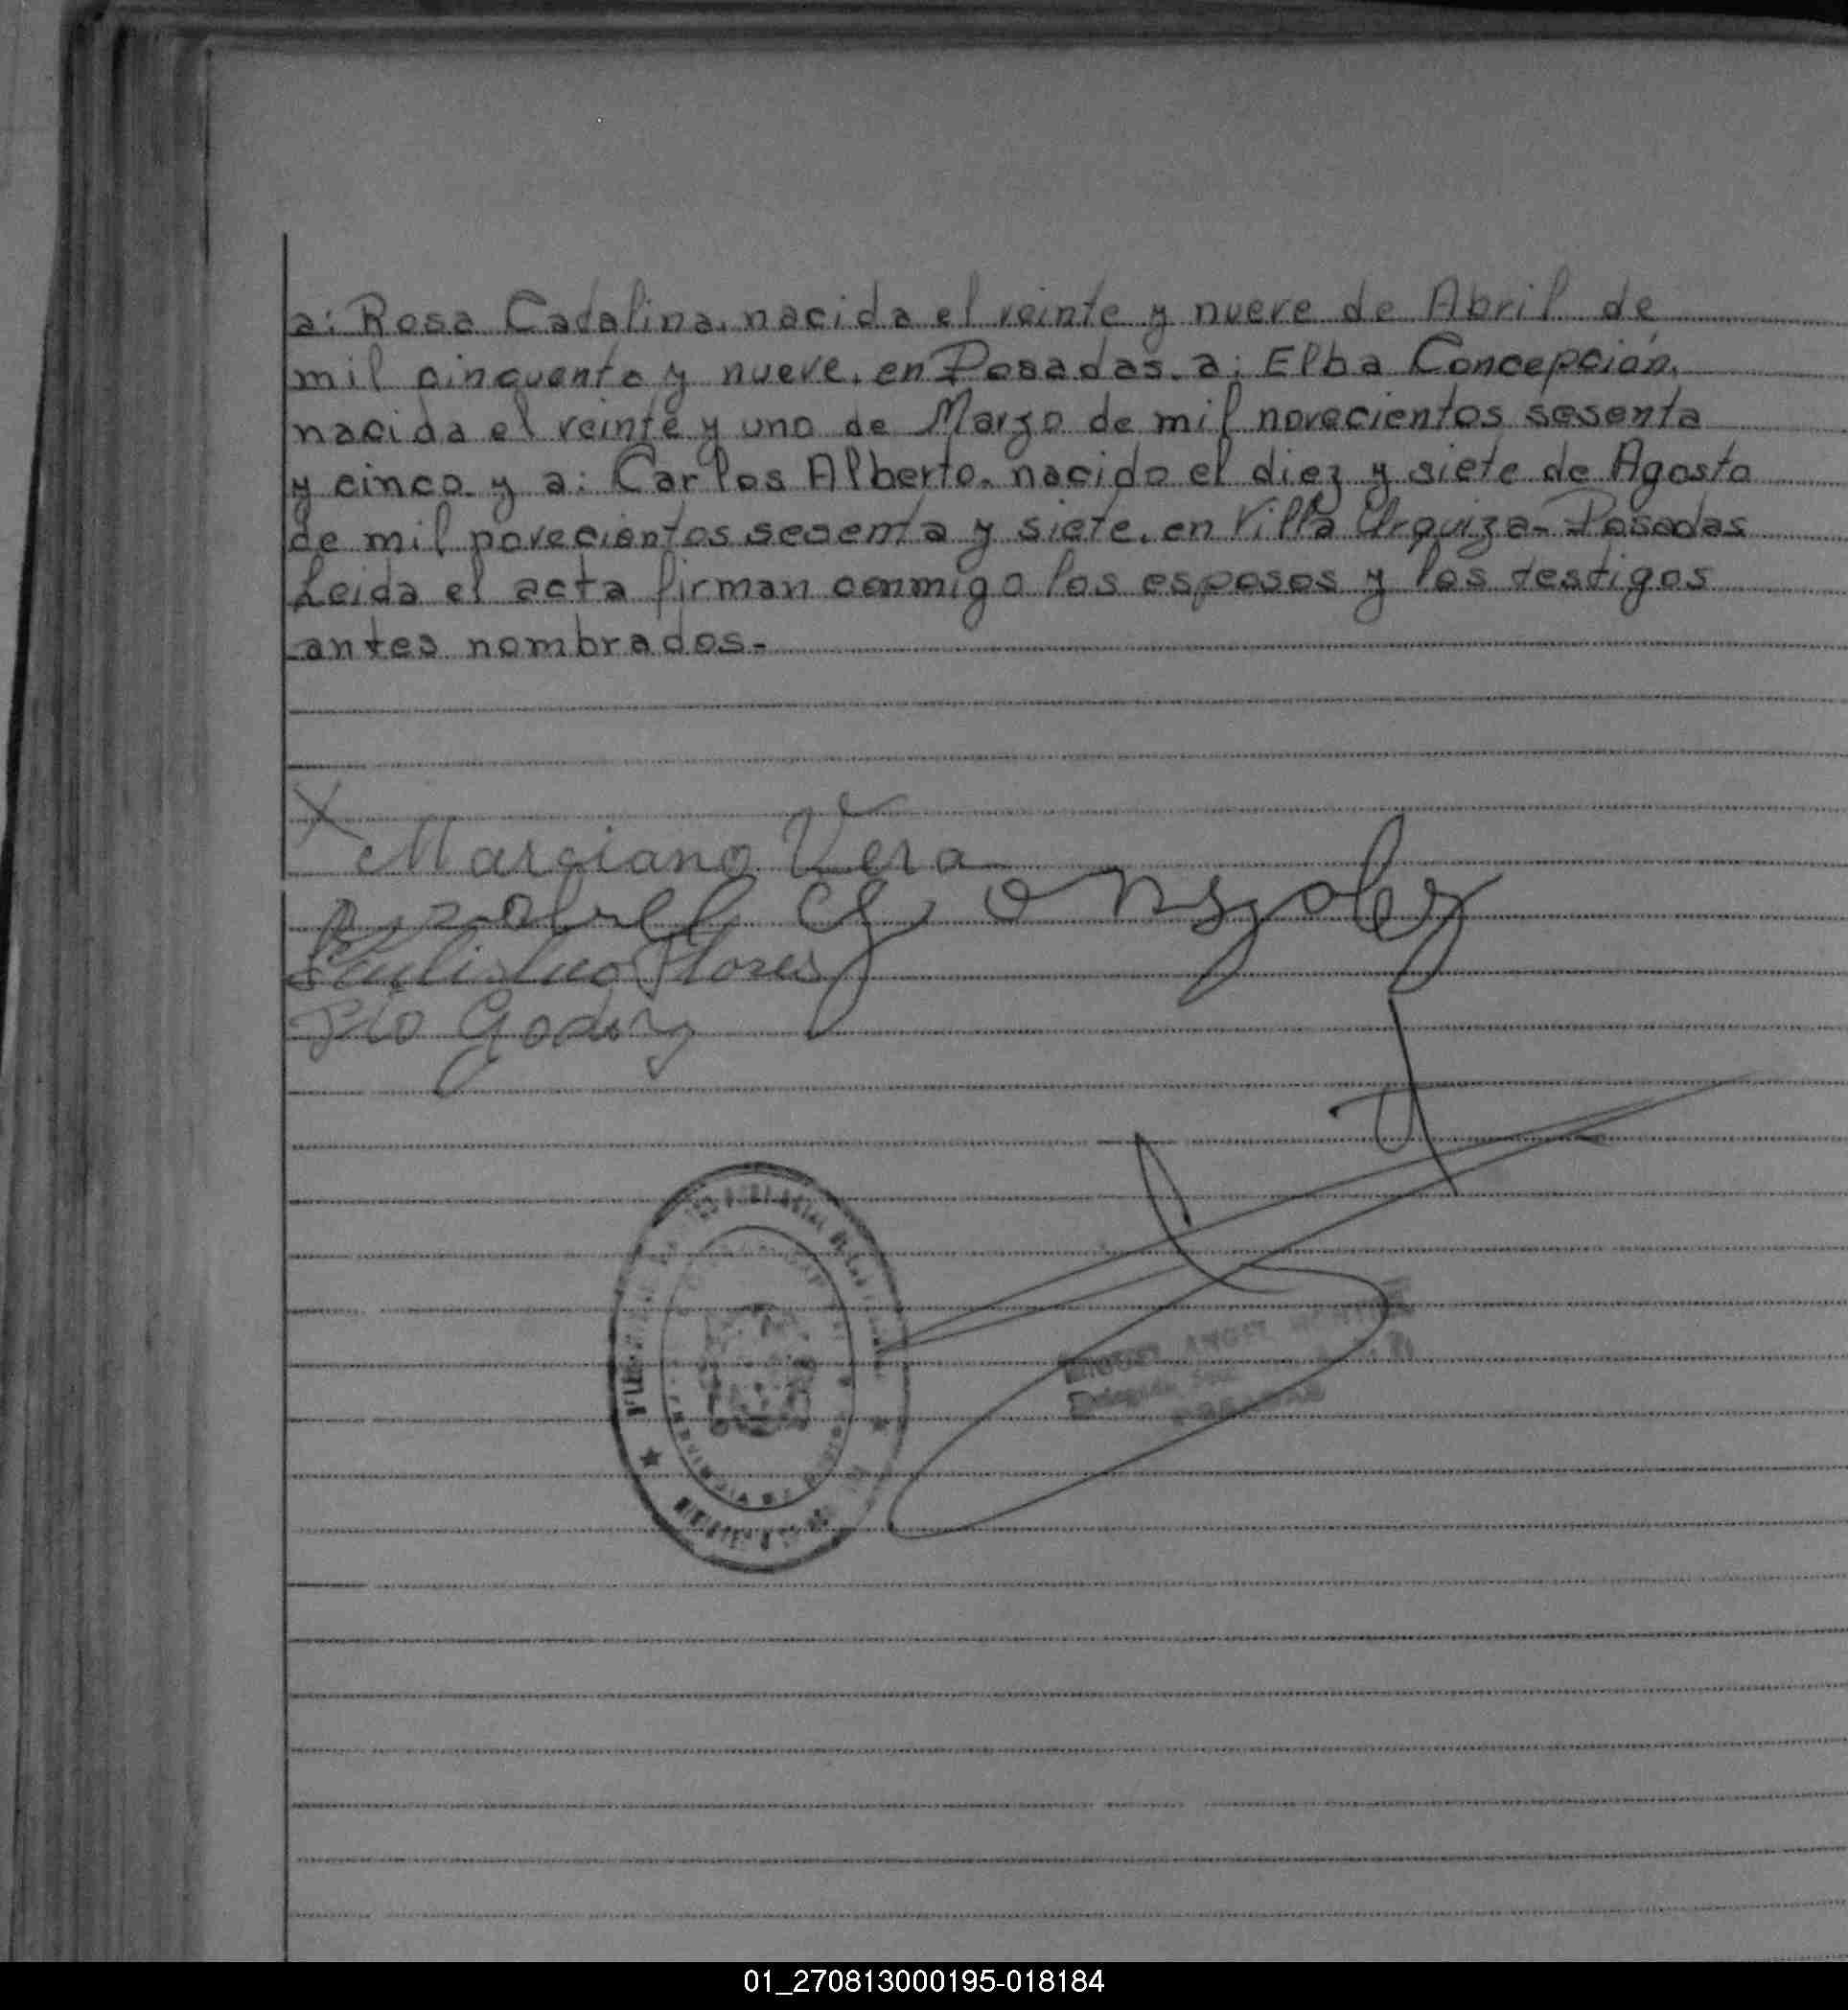 a: Rosa Cadalina, nacida el veinte y nueve de Abril de
mil cincuenta y nueve, en Posadas. a: Elba Concepción,
nacida el veinte y uno de Marzo de mil novecientos sesenta
y cinco y a: Carlos Alberto. nacido el diez y siete de Agosto
de mil novecientos sesenta y siete, en Villa Urquiza - Posadas
Leida el acta firman conmigo los esposos y los testigos
antes nombrados.-
X
Marciano Vera
Gonzalez
Flores
Pio Godoy
MIGUEL ANGEL
Delegado
POSADAS
PROVINCIA DE
01_270813000195-018184